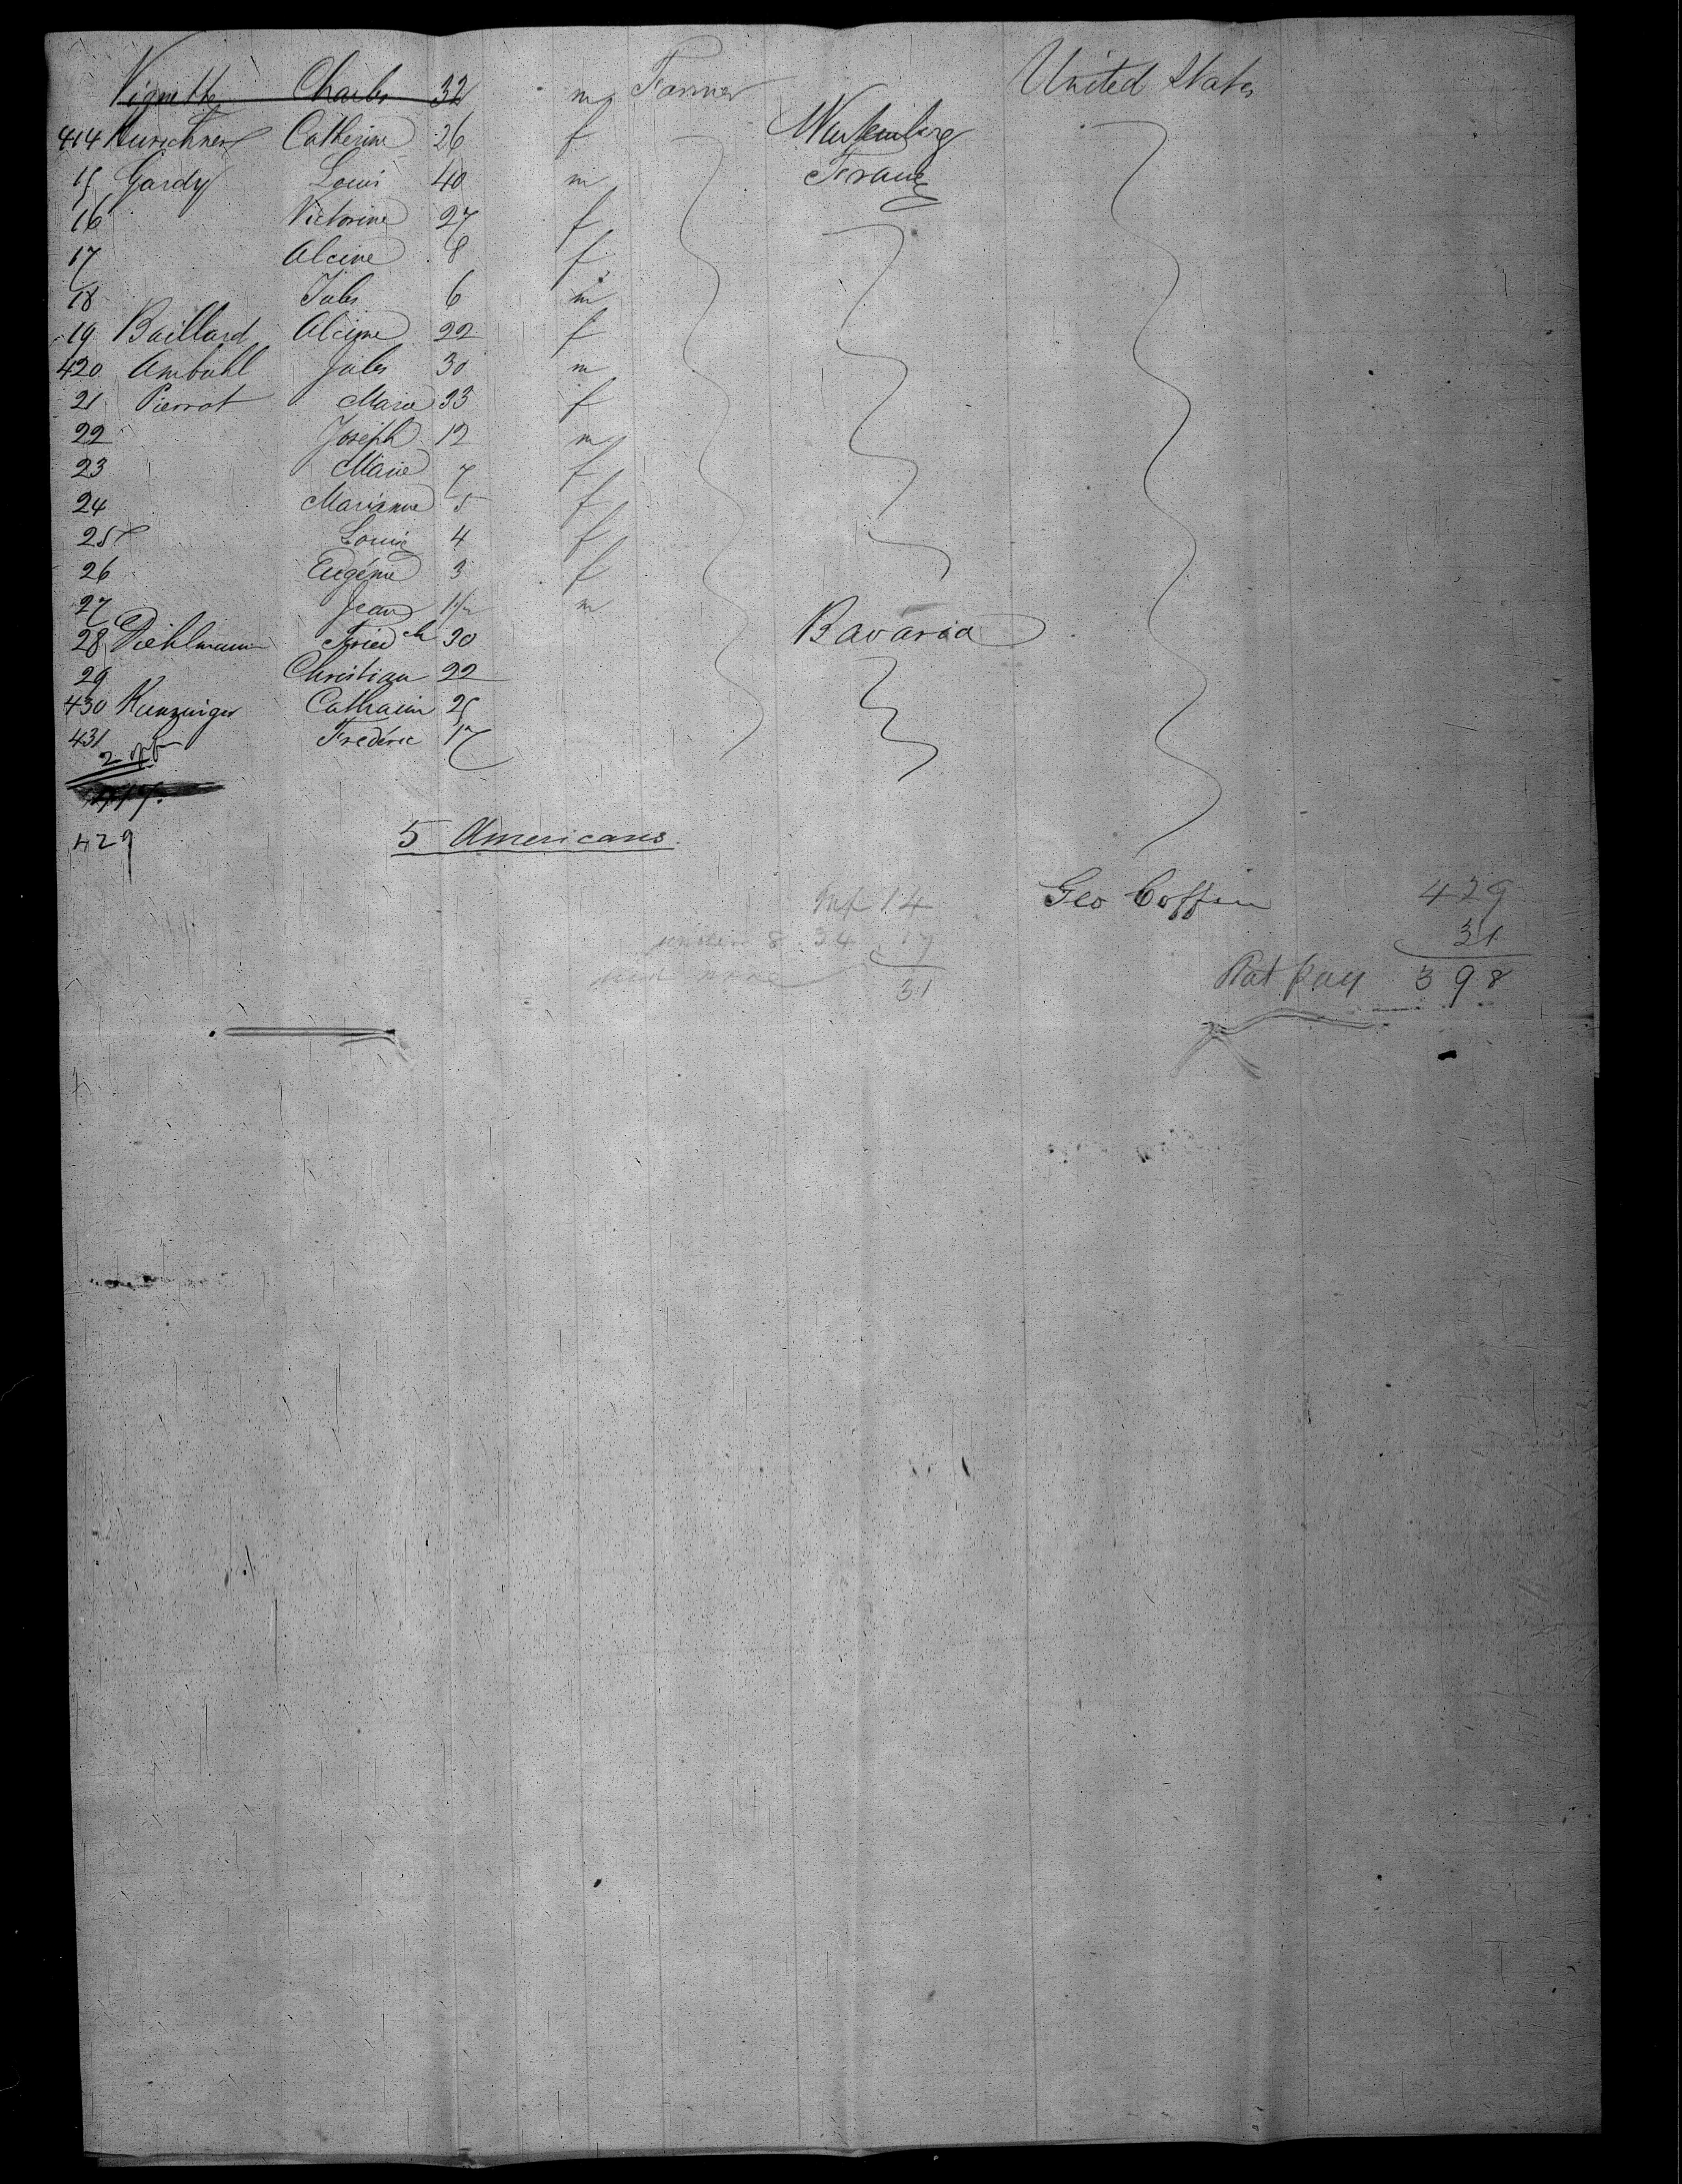 Vignette Charles 32 m Farmer United States
414 Kurschner Catherine 26 f Wurtemberg
15 Gardy Louis 40 m France
16 Victorine 27 f
17 Alcine 8 f
18 Jules 6 m
19 Baillard Alcime 22 f
420 Ambuhl Jules 30 m
21 Pierrot Marie 33 f
22 Joseph 12 m
23 Marie 7 f
24 Marianne 5 f
25 Louis 4 f
26 Eugénie 3 f
27 Jean 1½ m
28 Diehlmann Fried ch 30 Bavaria
29 Christian 22
430 Kunzinger Catharine 25
431 Frédéric 17
2 off
429 5 Americans.
Geo Coffin 429
Inf 14
under 8 . 34 17 31
31 Stat pay 398